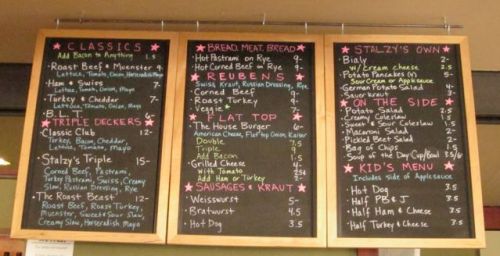 ★ CLASSICS ★
Add Bacon to Anything 1.5
• Roast Beef & Muenster 9-
Lettuce, Tomato, Onion, Horseradish Mayo
• Ham & Swiss 7-
Lettuce, Tomato, Onion, Mayo
• Turkey & Cheddar 7-
Lettuce, Tomato, Onion, Mayo
• B.L.T.
★ TRIPLE DECKERS ★
• Classic Club 12-
Turkey, Bacon, Cheddar,
Lettuce, Tomato, Mayo
• Stalzy's Triple 15-
Corned Beef, Pastrami,
Turkey Pastrami, Swiss, Creamy
Slaw, Russian Dressing, Rye
• The Roast Beast 12-
Roast Beef, Roast Turkey,
Muenster, Sweet & Sour Slaw,
Creamy Slaw, Horseradish Mayo
★ BREAD, MEAT, BREAD ★
• Hot Pastrami on Rye 9-
• Hot Corned Beef on Rye 9-
★ REUBENS ★
Swiss, Kraut, Russian Dressing, Rye
• Corned Beef 9-
• Roast Turkey 9-
• Veggie 7-
★ FLAT TOP ★
• The House Burger 6-
American Cheese, Flat Top Onion, Kaiser
Double 7.5
Triple 9-
Add Bacon 1.5
• Grilled Cheese 4-
With Tomato
Add Ham or Turkey
★ SAUSAGES & KRAUT ★
• Weisswurst 5-
• Bratwurst 4.5
• Hot Dog 3.5
★ STALZY'S OWN ★
• Bialy 2-
w/ Cream cheese 2.5
• Potato Pancakes 5-
Sour Cream or Applesauce
• German Potato Salad 4-
• Sauerkraut 3-
★ ON THE SIDE ★
• Potato Salad 3.5
• Creamy Coleslaw 3.5
• Sweet & Sour Coleslaw 3.5
• Macaroni Salad 2-
• Pickled Beet Salad 2-
• Bag of Chips 1.5
• Soup of the Day Cup/Bowl
★ KID'S MENU ★
Includes Side of Applesauce
• Hot Dog 3.5
• Half PB & J 3.5
• Half Ham & Cheese 3.5
• Half Turkey & Cheese 3.5